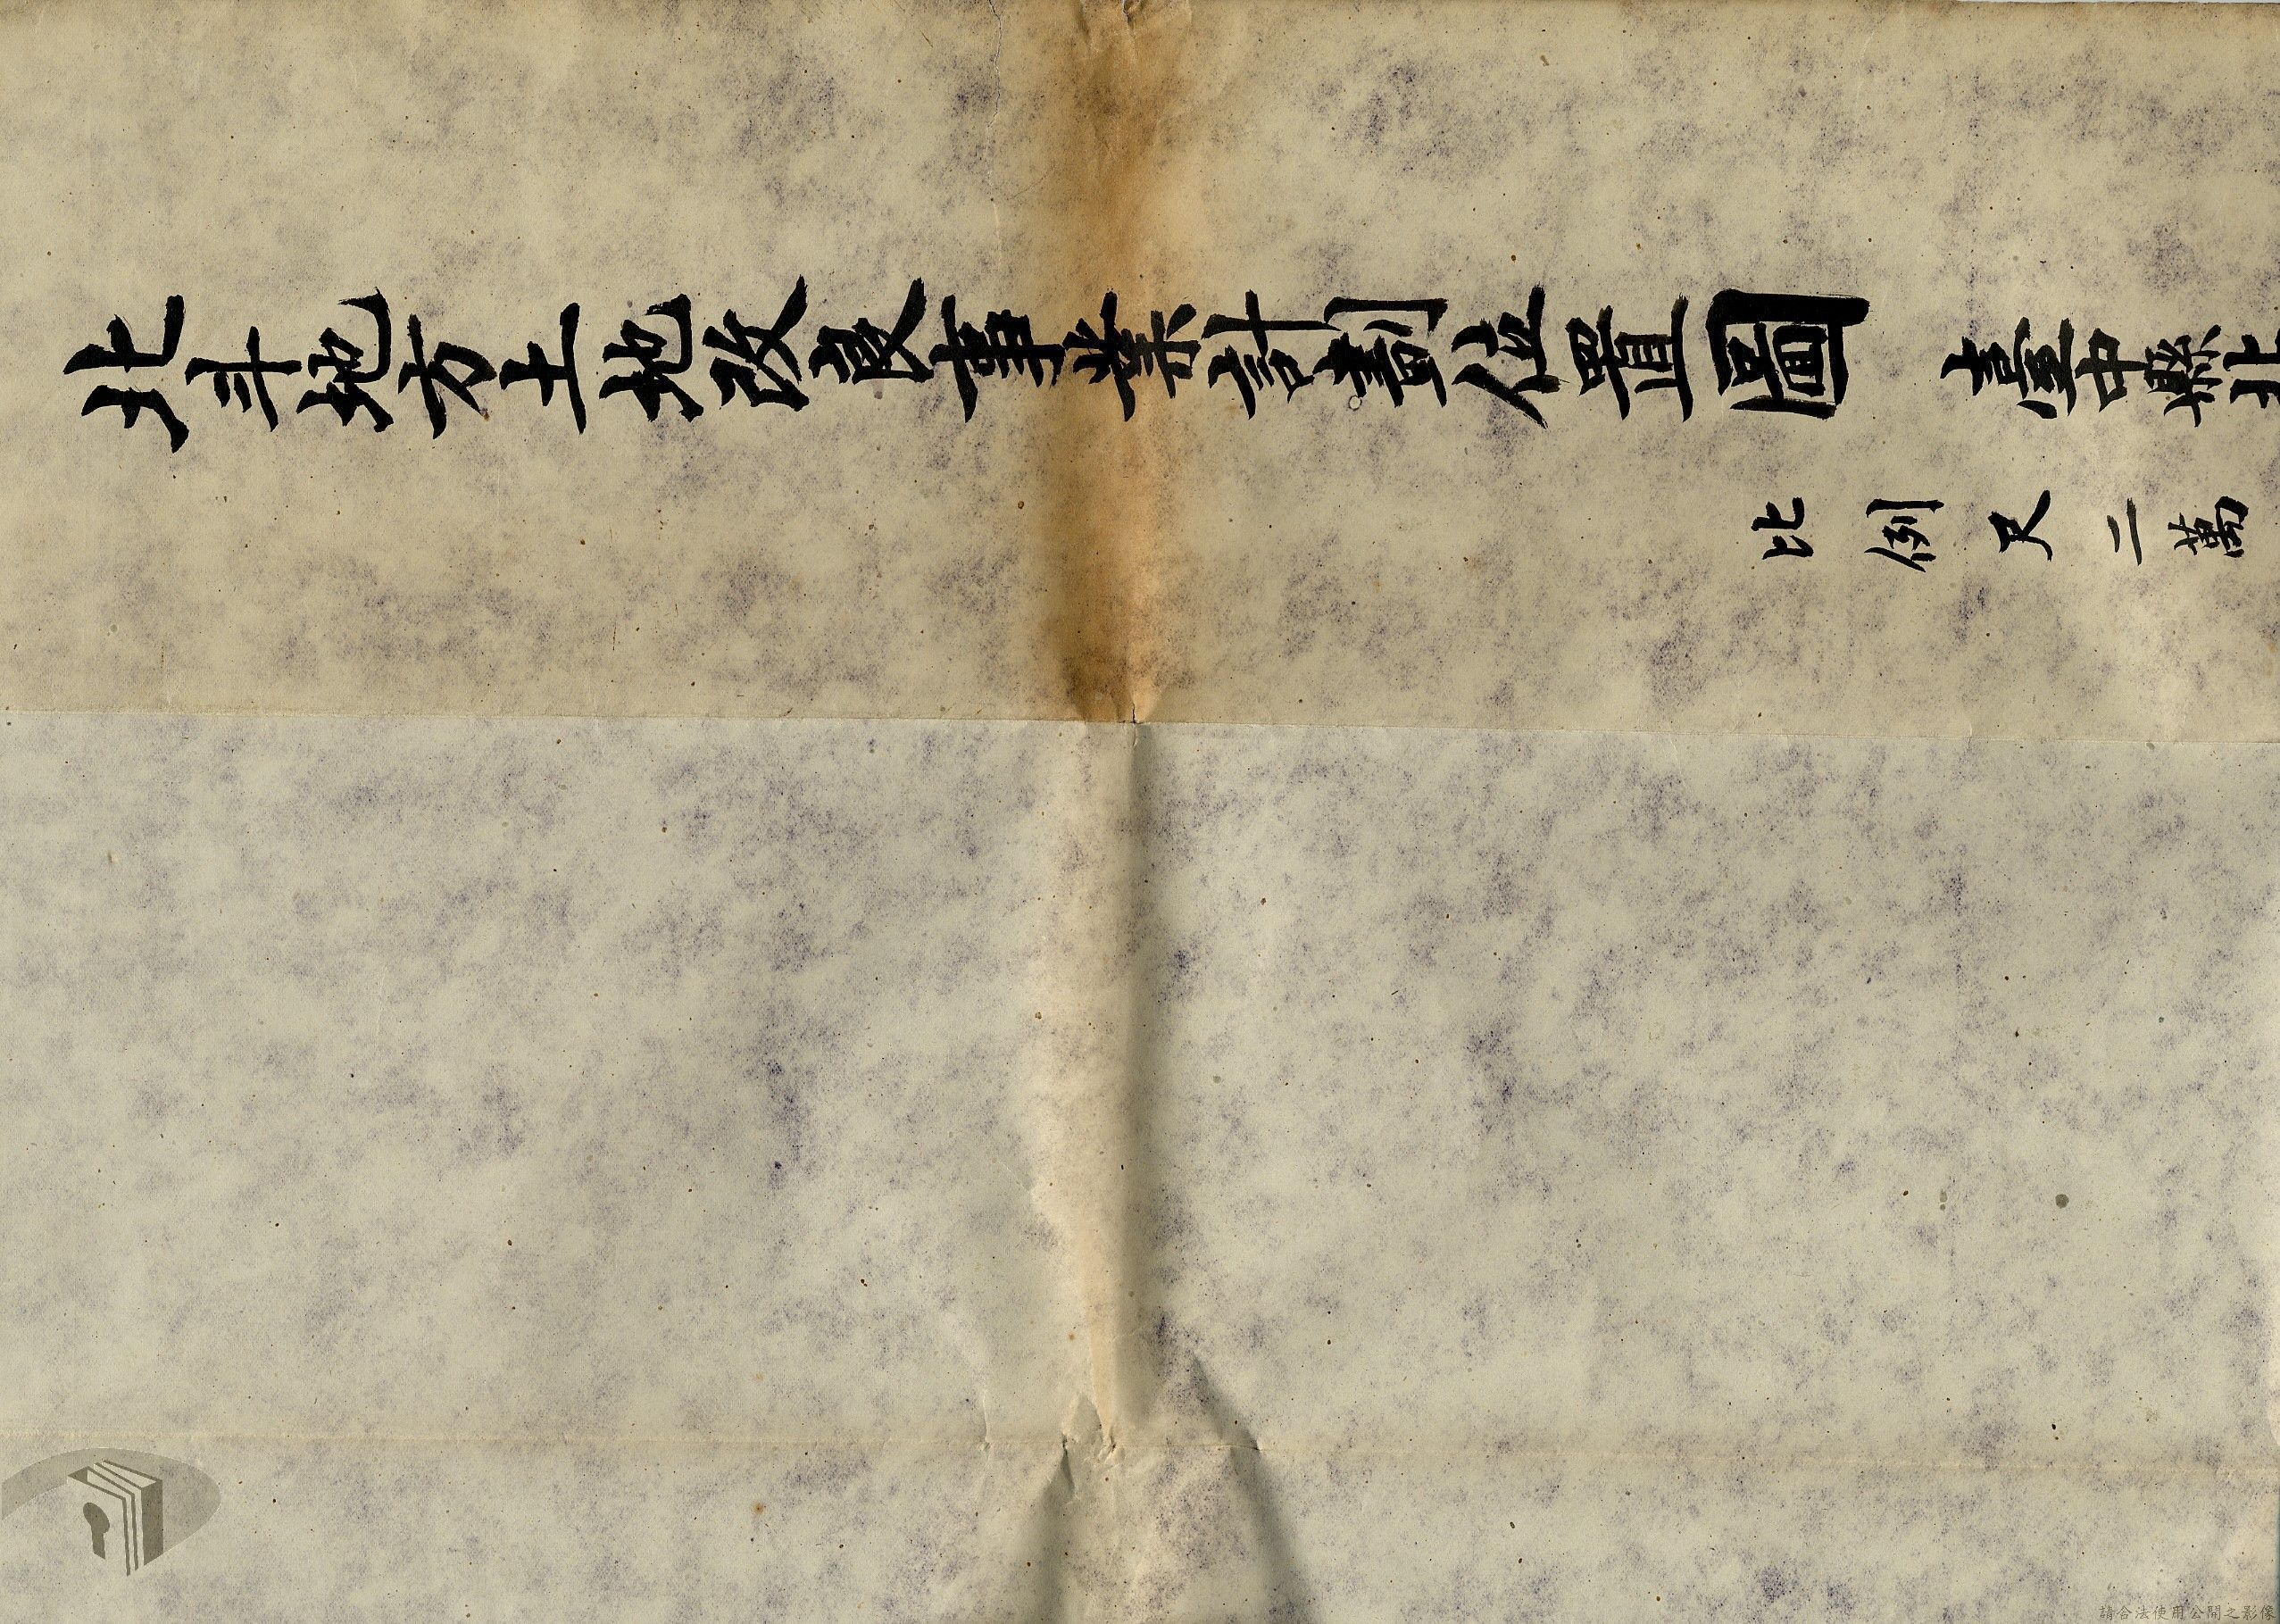 北斗地方土地改良事業計劃位置圖 臺中縣北
比例尺二萬
請合法使用公開之影像